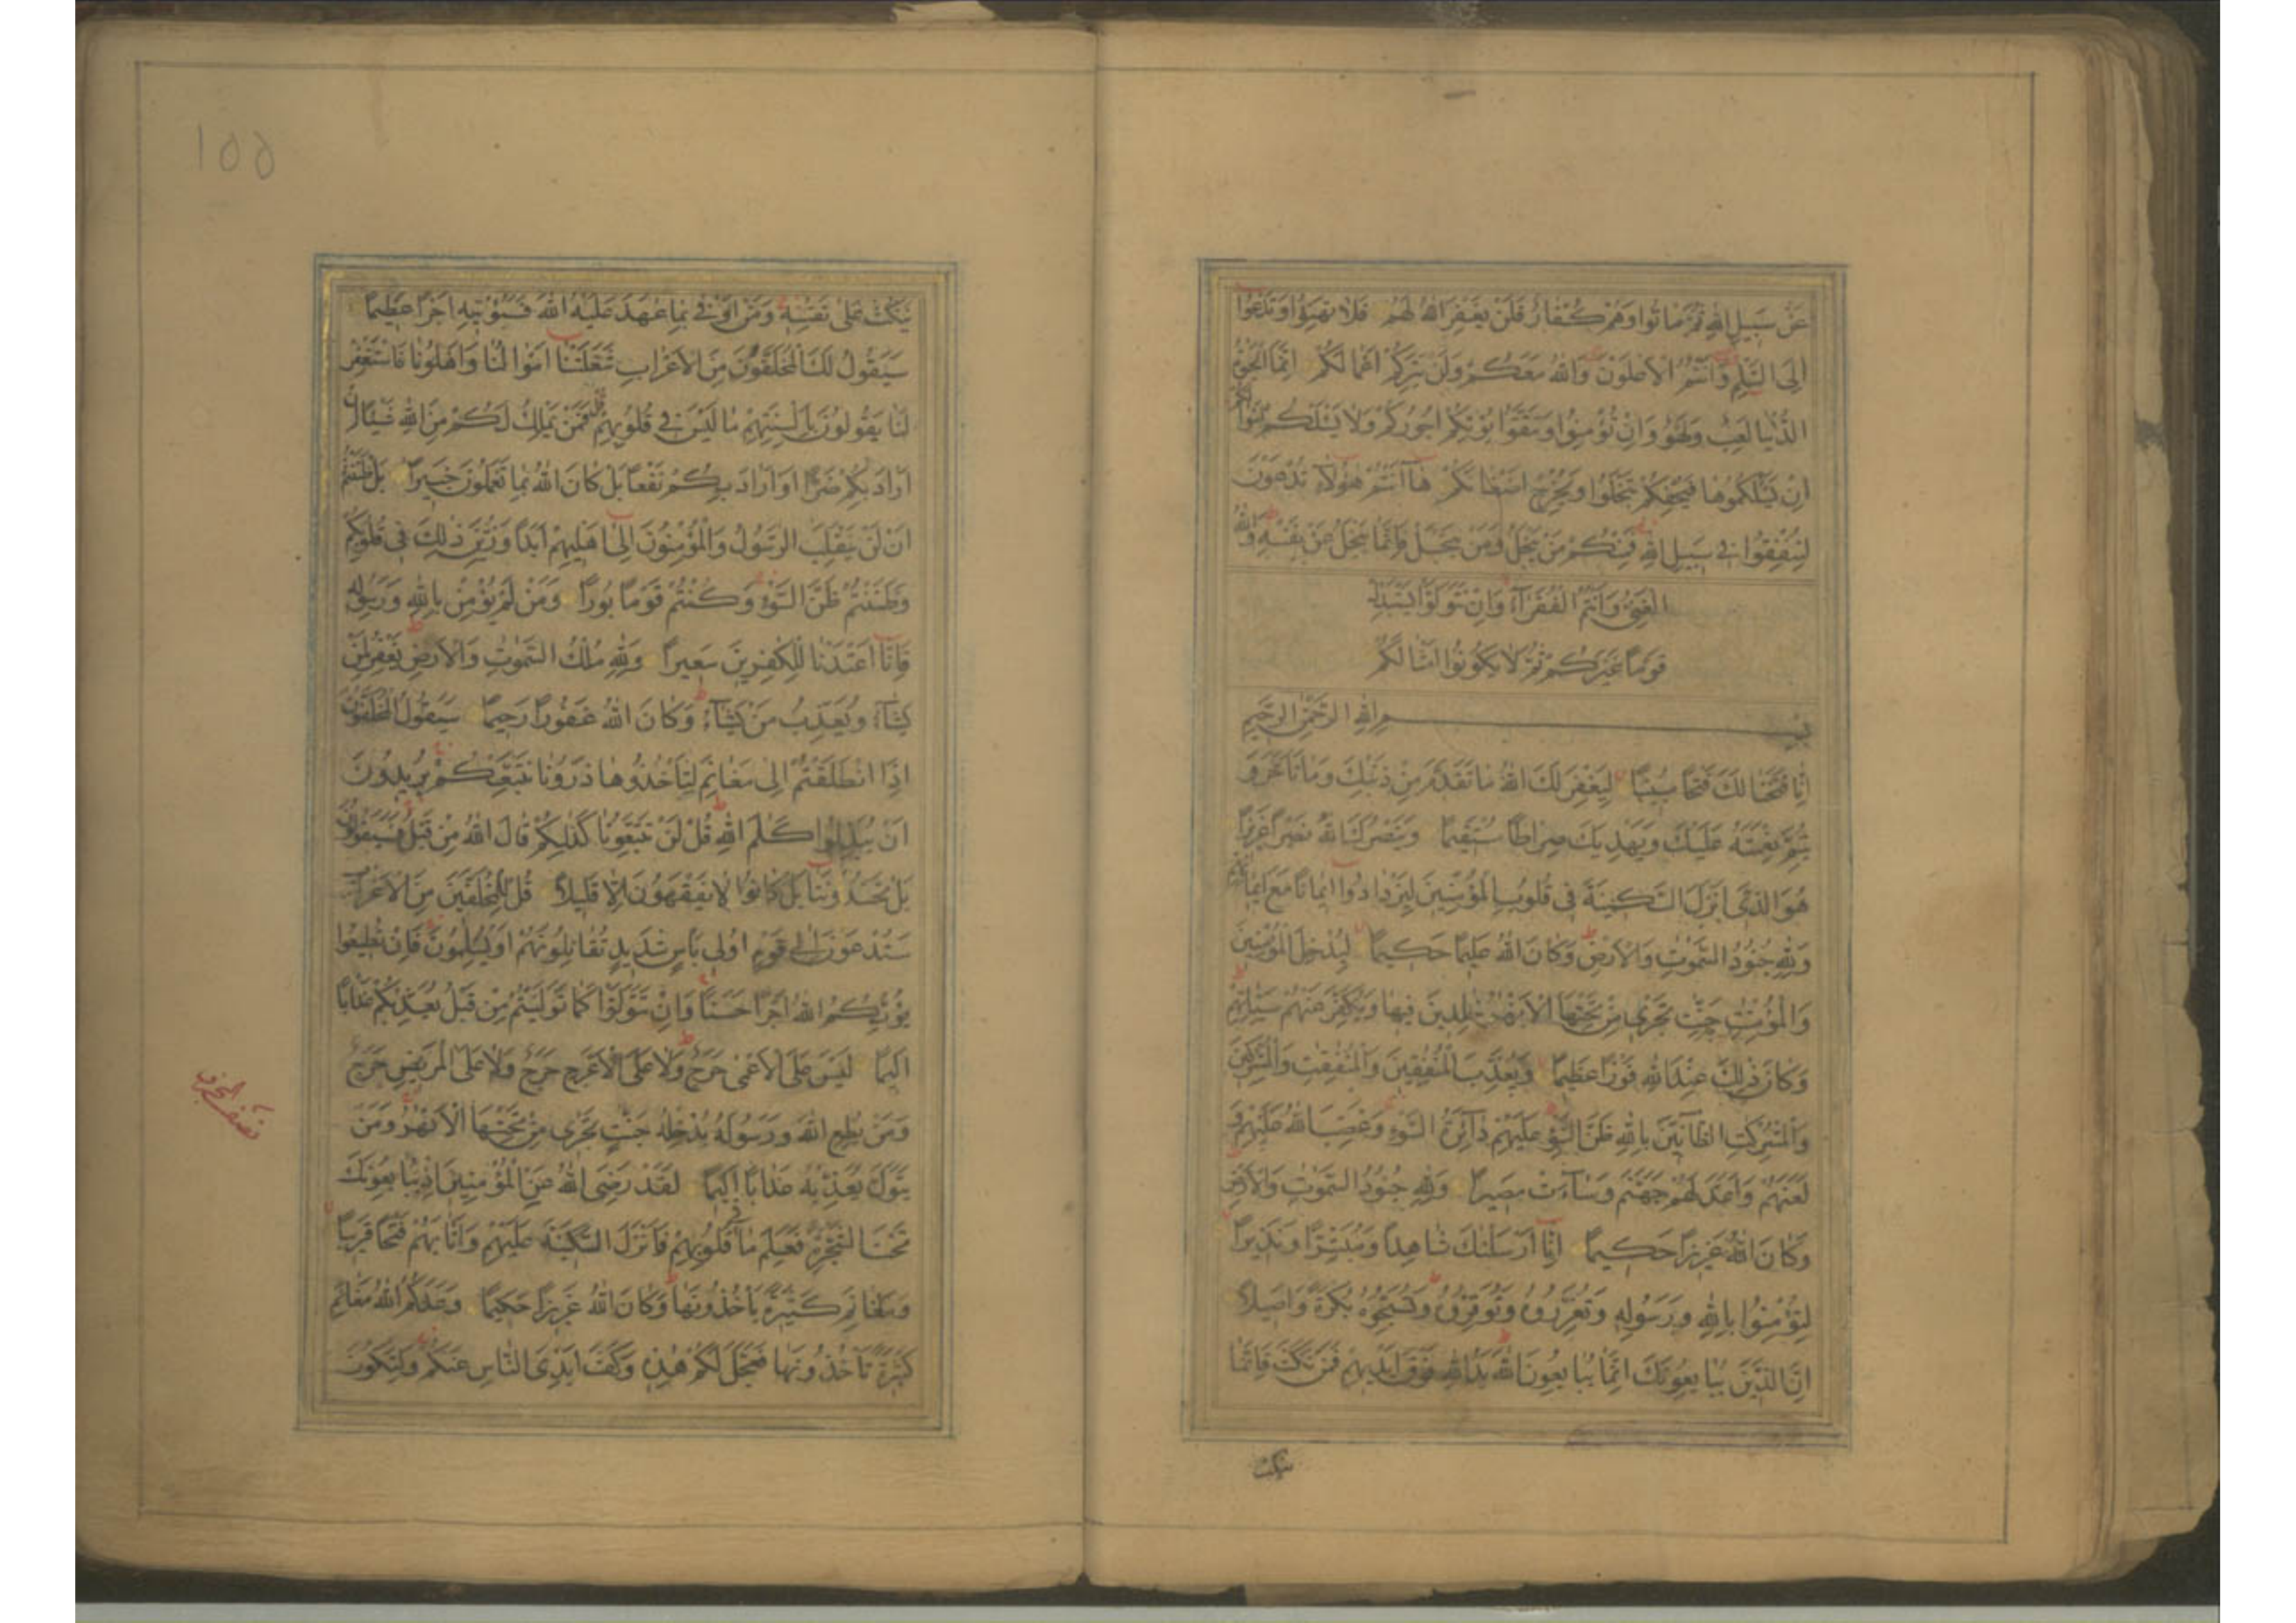 عَنْ سَبِيلِ اللهِ ثُمَّ مَاتُوا وَهُمْ كُفَّارٌ فَلَنْ يَغْفِرَ اللهُ لَهُمْ فَلَا تَهِنُوا وَتَدْعُوا
اِلَى السَّلْمِ وَاَنْتُمُ الْاَعْلَوْنَ وَاللهُ مَعَكُمْ وَلَنْ يَتِرَكُمْ اَعْمَالَكُمْ اِنَّمَا الْحَيٰوةُ
الدُّنْيَا لَعِبٌ وَلَهْوٌ وَاِنْ تُؤْمِنُوا وَتَتَّقُوا يُؤْتِكُمْ اُجُورَكُمْ وَلَا يَسْئَلْكُمْ اَمْوَالَكُمْ
اِنْ يَسْئَلْكُمُوهَا فَيُحْفِكُمْ تَبْخَلُوا وَيُخْرِجْ اَضْغَانَكُمْ هَا اَنْتُمْ هٰؤُلَاءِ تُدْعَوْنَ
لِتُنْفِقُوا فِي سَبِيلِ اللهِ فَمِنْكُمْ مَنْ يَبْخَلُ وَمَنْ يَبْخَلْ فَاِنَّمَا يَبْخَلُ عَنْ نَفْسِهِ وَاللهُ
الْغَنِيُّ وَاَنْتُمُ الْفُقَرَاءُ وَاِنْ تَتَوَلَّوْا يَسْتَبْدِلْ
قَوْمًا غَيْرَكُمْ ثُمَّ لَا يَكُونُوا اَمْثَالَكُمْ
بِسْمِ اللهِ الرَّحْمٰنِ الرَّحِيمِ
اِنَّا فَتَحْنَا لَكَ فَتْحًا مُبِينًا لِيَغْفِرَ لَكَ اللهُ مَا تَقَدَّمَ مِنْ ذَنْبِكَ وَمَا تَاَخَّرَ وَ
يُتِمَّ نِعْمَتَهُ عَلَيْكَ وَيَهْدِيَكَ صِرَاطًا مُسْتَقِيمًا وَيَنْصُرَكَ اللهُ نَصْرًا عَزِيزًا
هُوَ الَّذِي اَنْزَلَ السَّكِينَةَ فِي قُلُوبِ الْمُؤْمِنِينَ لِيَزْدَادُوا اِيمَانًا مَعَ اِيمَانِهِمْ
وَلِلّٰهِ جُنُودُ السَّمٰوٰتِ وَالْاَرْضِ وَكَانَ اللهُ عَلِيمًا حَكِيمًا لِيُدْخِلَ الْمُؤْمِنِينَ
وَالْمُؤْمِنٰتِ جَنّٰتٍ تَجْرِي مِنْ تَحْتِهَا الْاَنْهٰرُ خٰلِدِينَ فِيهَا وَيُكَفِّرَ عَنْهُمْ سَيِّاٰتِهِمْ
وَكَانَ ذٰلِكَ عِنْدَ اللهِ فَوْزًا عَظِيمًا وَيُعَذِّبَ الْمُنٰفِقِينَ وَالْمُنٰفِقٰتِ وَالْمُشْرِكِينَ
وَالْمُشْرِكٰتِ الظَّانِّينَ بِاللهِ ظَنَّ السَّوْءِ عَلَيْهِمْ دَائِرَةُ السَّوْءِ وَغَضِبَ اللهُ عَلَيْهِمْ وَ
لَعَنَهُمْ وَاَعَدَّ لَهُمْ جَهَنَّمَ وَسَاءَتْ مَصِيرًا وَلِلّٰهِ جُنُودُ السَّمٰوٰتِ وَالْاَرْضِ
وَكَانَ اللهُ عَزِيزًا حَكِيمًا اِنَّا اَرْسَلْنٰكَ شَاهِدًا وَمُبَشِّرًا وَنَذِيرًا
لِتُؤْمِنُوا بِاللهِ وَرَسُولِهِ وَتُعَزِّرُوهُ وَتُوَقِّرُوهُ وَتُسَبِّحُوهُ بُكْرَةً وَاَصِيلًا
اِنَّ الَّذِينَ يُبَايِعُونَكَ اِنَّمَا يُبَايِعُونَ اللهَ يَدُ اللهِ فَوْقَ اَيْدِيهِمْ فَمَنْ نَكَثَ فَاِنَّمَا
ينكث
١٥٥
يَنْكُثُ عَلٰى نَفْسِهِ وَمَنْ اَوْفٰى بِمَا عٰهَدَ عَلَيْهُ اللهَ فَسَيُؤْتِيهِ اَجْرًا عَظِيمًا
سَيَقُولُ لَكَ الْمُخَلَّفُونَ مِنَ الْاَعْرَابِ شَغَلَتْنَا اَمْوَالُنَا وَاَهْلُونَا فَاسْتَغْفِرْ
لَنَا يَقُولُونَ بِاَلْسِنَتِهِمْ مَا لَيْسَ فِي قُلُوبِهِمْ قُلْ فَمَنْ يَمْلِكُ لَكُمْ مِنَ اللهِ شَيْئًا اِنْ
اَرَادَ بِكُمْ ضَرًّا اَوْ اَرَادَ بِكُمْ نَفْعًا بَلْ كَانَ اللهُ بِمَا تَعْمَلُونَ خَبِيرًا بَلْ ظَنَنْتُمْ
اَنْ لَنْ يَنْقَلِبَ الرَّسُولُ وَالْمُؤْمِنُونَ اِلٰى اَهْلِيهِمْ اَبَدًا وَزُيِّنَ ذٰلِكَ فِي قُلُوبِكُمْ
وَظَنَنْتُمْ ظَنَّ السَّوْءِ وَكُنْتُمْ قَوْمًا بُورًا وَمَنْ لَمْ يُؤْمِنْ بِاللهِ وَرَسُولِهِ
فَاِنَّا اَعْتَدْنَا لِلْكٰفِرِينَ سَعِيرًا وَلِلّٰهِ مُلْكُ السَّمٰوٰتِ وَالْاَرْضِ يَغْفِرُ لِمَنْ
يَشَاءُ وَيُعَذِّبُ مَنْ يَشَاءُ وَكَانَ اللهُ غَفُورًا رَحِيمًا سَيَقُولُ الْمُخَلَّفُونَ
اِذَا انْطَلَقْتُمْ اِلٰى مَغَانِمَ لِتَاْخُذُوهَا ذَرُونَا نَتَّبِعْكُمْ يُرِيدُونَ
اَنْ يُبَدِّلُوا كَلٰمَ اللهِ قُلْ لَنْ تَتَّبِعُونَا كَذٰلِكُمْ قَالَ اللهُ مِنْ قَبْلُ فَسَيَقُولُونَ
بَلْ تَحْسُدُونَنَا بَلْ كَانُوا لَا يَفْقَهُونَ اِلَّا قَلِيلًا قُلْ لِلْمُخَلَّفِينَ مِنَ الْاَعْرَابِ
سَتُدْعَوْنَ اِلٰى قَوْمٍ اُولِي بَاْسٍ شَدِيدٍ تُقَاتِلُونَهُمْ اَوْ يُسْلِمُونَ فَاِنْ تُطِيعُوا
يُؤْتِكُمُ اللهُ اَجْرًا حَسَنًا وَاِنْ تَتَوَلَّوْا كَمَا تَوَلَّيْتُمْ مِنْ قَبْلُ يُعَذِّبْكُمْ عَذَابًا
اَلِيمًا لَيْسَ عَلَى الْاَعْمٰى حَرَجٌ وَلَا عَلَى الْاَعْرَجِ حَرَجٌ وَلَا عَلَى الْمَرِيضِ حَرَجٌ
وَمَنْ يُطِعِ اللهَ وَرَسُولَهُ يُدْخِلْهُ جَنّٰتٍ تَجْرِي مِنْ تَحْتِهَا الْاَنْهٰرُ وَمَنْ
يَتَوَلَّ يُعَذِّبْهُ عَذَابًا اَلِيمًا لَقَدْ رَضِيَ اللهُ عَنِ الْمُؤْمِنِينَ اِذْ يُبَايِعُونَكَ
تَحْتَ الشَّجَرَةِ فَعَلِمَ مَا فِي قُلُوبِهِمْ فَاَنْزَلَ السَّكِينَةَ عَلَيْهِمْ وَاَثَابَهُمْ فَتْحًا قَرِيبًا
وَمَغَانِمَ كَثِيرَةً يَاْخُذُونَهَا وَكَانَ اللهُ عَزِيزًا حَكِيمًا وَعَدَكُمُ اللهُ مَغَانِمَ
كَثِيرَةً تَاْخُذُونَهَا فَعَجَّلَ لَكُمْ هٰذِهِ وَكَفَّ اَيْدِيَ النَّاسِ عَنْكُمْ وَلِتَكُونَ